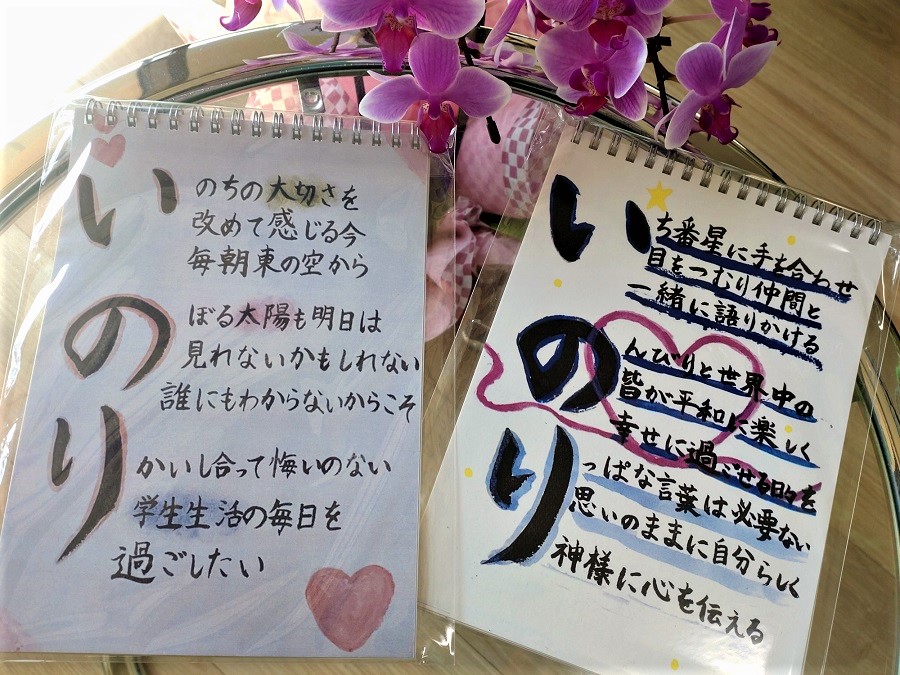 いのちの大切さを
改めて感じる今
毎朝東の空から
のぼる太陽も明日は
見れないかもしれない
誰にもわからないからこそ
りかいし合って悔いのない
学生生活の毎日を
過ごしたい
いち番星に手を合わせ
目をつむり仲間と
一緒に語りかける
のんびりと世界中の
皆が平和に楽しく
幸せに過ごせる日々を
りっぱな言葉は必要ない
思いのままに自分らしく
神様に心を伝える